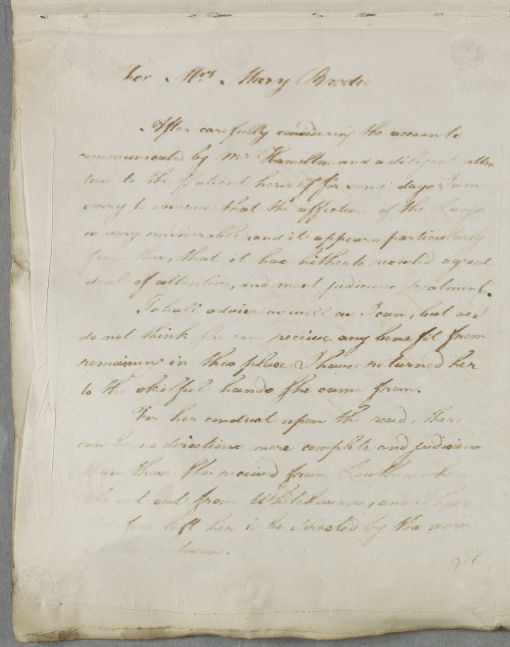 For Mrs Mary Brodie
After carefully considering the accounts
communicated by Mr Hamilton and a diligent atten
tion to the Patient herself for some days I am
sorry to observe that the affection of the Lungs
is very considerable and it appears particularly
from this, that it has hitherto resisted a great
deal of attentive, and most judicious treatment.
I shall advise as well as I can, but as I
do not think she can receive any benefit from
remaining in this place I have returned her
to the skilful hands she came from.
For her conduct upon the road, there
can be no directions more complete and judicious
than those she received from when
she set out from Whitehaven, and I have
left her to be directed by the same